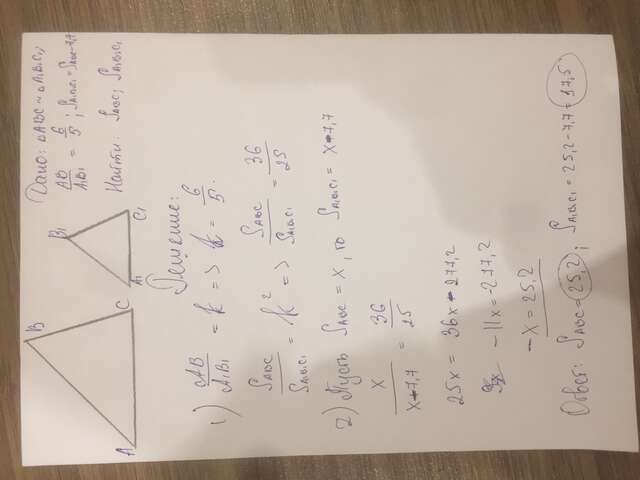 B
A
C
B₁
A₁
C₁
Дано: △ABC ~ △A₁B₁C₁;
AB/A₁B₁ = 6/5; S_A₁B₁C₁ = S_ABC - 7,7
Найти: S_ABC; S_A₁B₁C₁
Решение:
1) AB/A₁B₁ = k => k = 6/5.
S_ABC/S_A₁B₁C₁ = k² => S_ABC/S_A₁B₁C₁ = 36/25
2) Пусть S_ABC = x, то S_A₁B₁C₁ = x - 7,7
x/x-7,7 = 36/25
25x = 36x - 277,2
-11x = -277,2
-x = 25,2
Ответ: S_ABC = 25,2; S_A₁B₁C₁ = 25,2 - 7,7 = 17,5